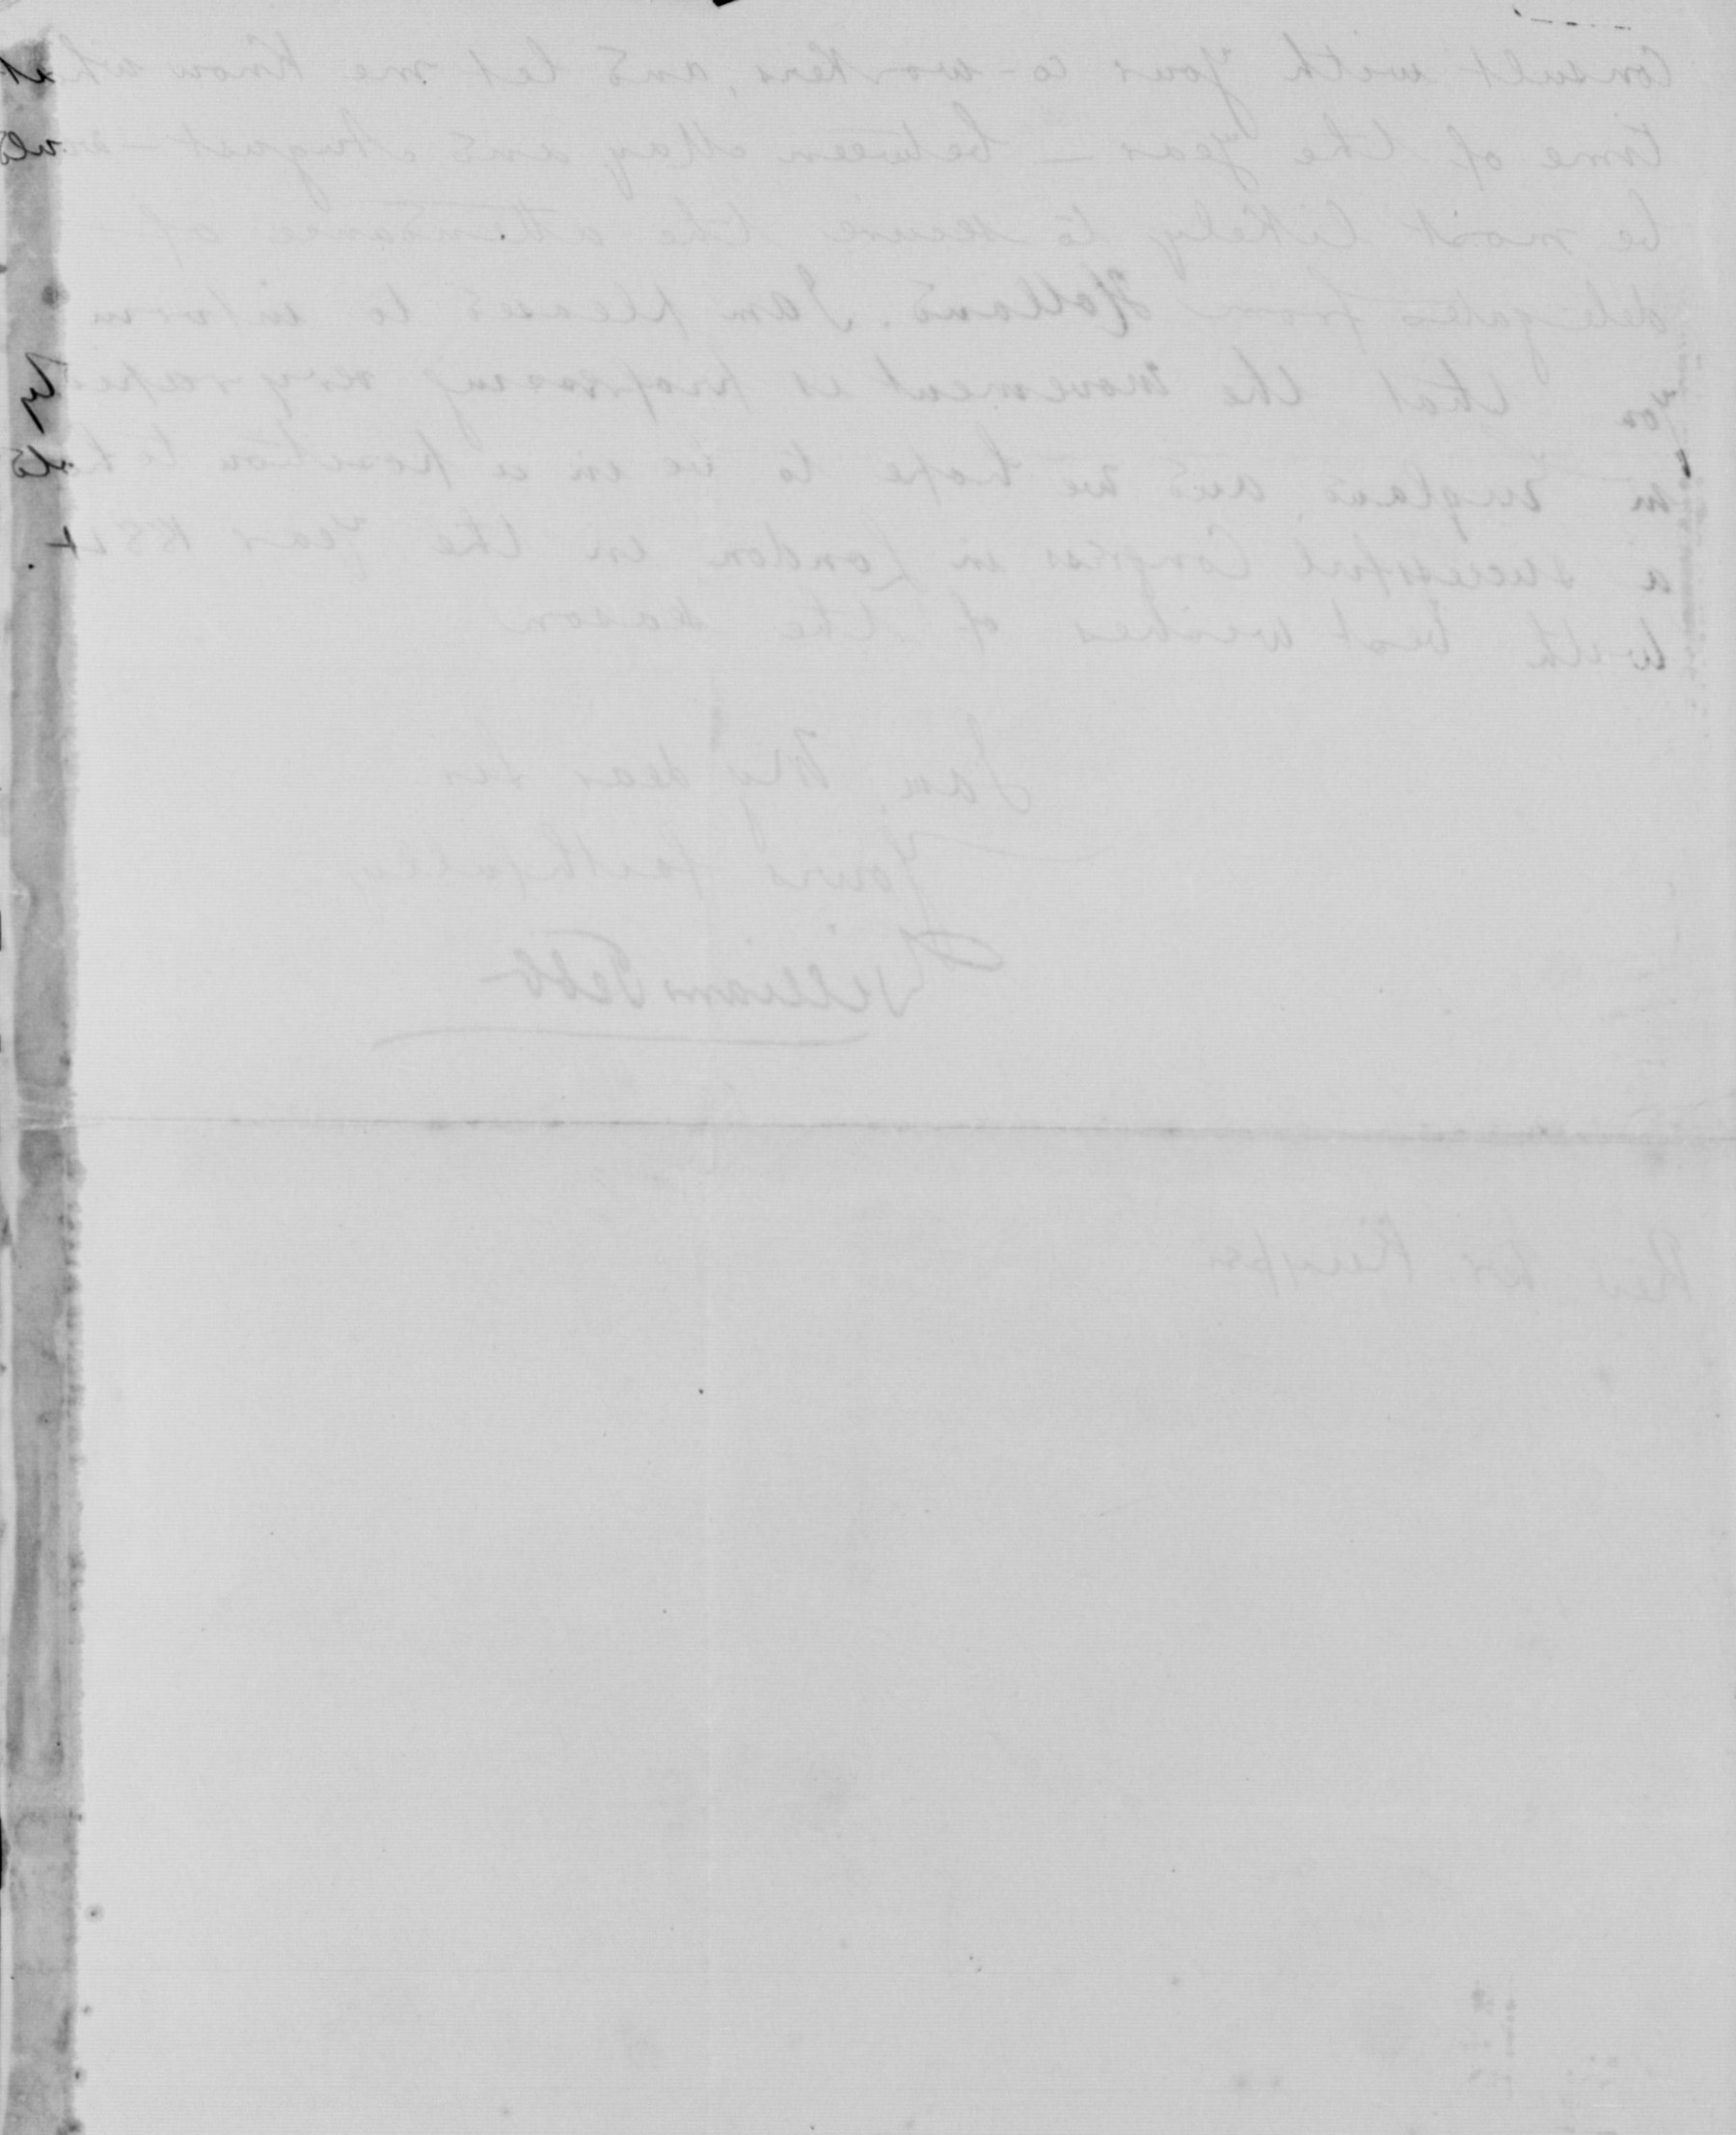 Consult with your co-workers, and let me know what
time of the year – between May and August – would
be most likely to secure the attendance of
delegates from Holland. I am pleased to inform
you that the movement is progressing very rapidly
in England and we hope to be in a position to hold
a successful Congress in London in the year 1881.
With best wishes of the season
I am, My dear Sir
Yours faithfully
William Tebb
Rev Dr. Kuyper